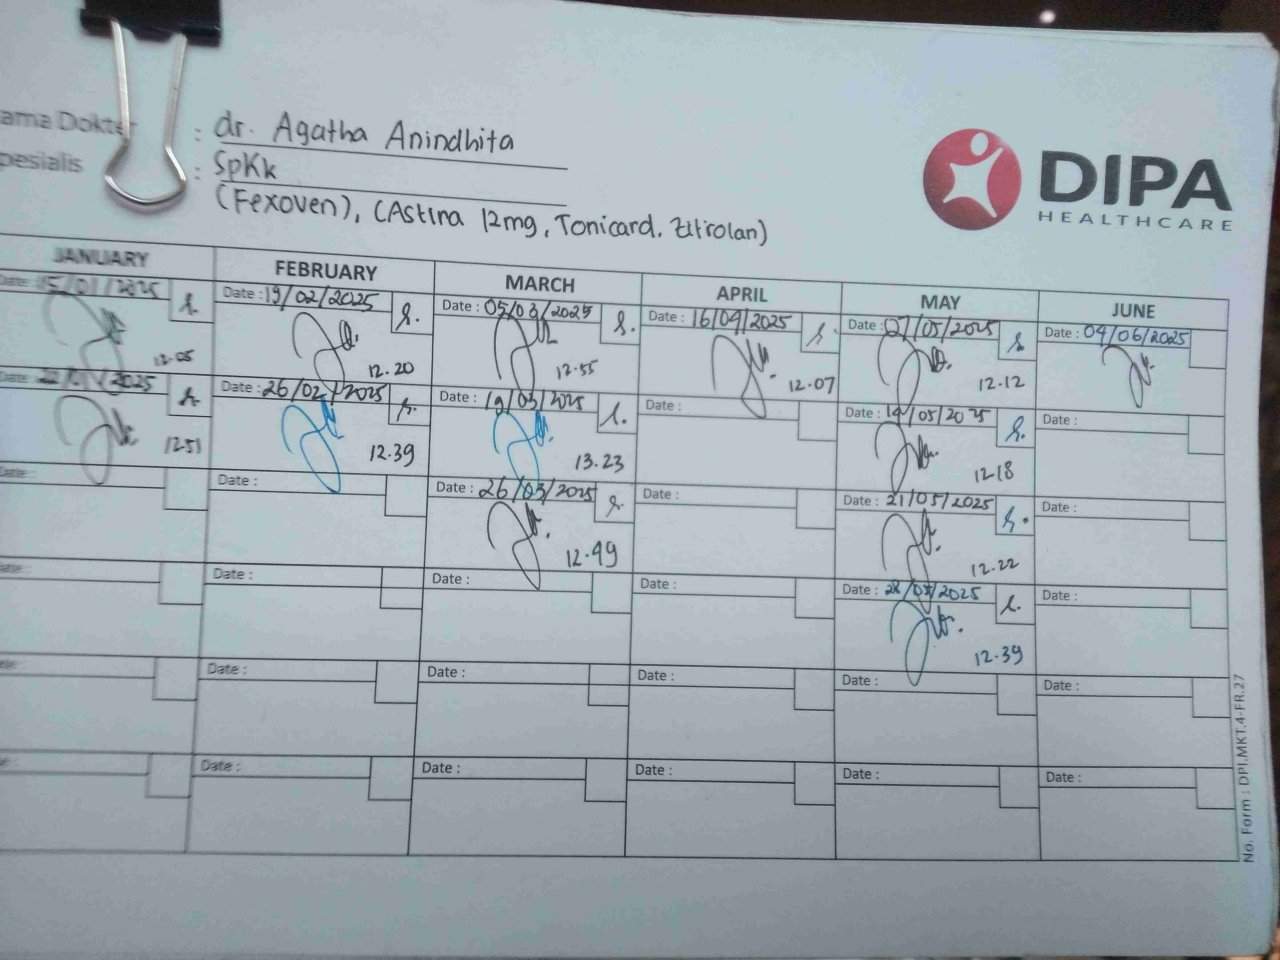 ama Dokter : dr. Agatha Anindhita
pesialis : SpKk
(Fexoven), (Astina 12mg, Tonicard. Zitrolan)
DIPA
HEALTHCARE
JANUARY FEBRUARY MARCH APRIL MAY JUNE
Date : 15/01/2025 Date : 19/02/2025 Date : 05/03/2025 Date : 16/04/2025 Date : 07/05/2025 Date : 04/06/2025
12.05 12.20 12.55 12.07 12.12
Date : 22/01/2025 Date : 26/02/2025 Date : 19/03/2025 Date : Date : 14/05/2025 Date :
12.51 12.39 13.23 12.18
Date : Date : Date : 26/03/2025 Date : Date : 21/05/2025 Date :
12.49 12.22
Date : Date : Date : Date : Date : 28/05/2025 Date :
12.39
Date : Date : Date : Date : Date :
Date : Date : Date : Date : Date :
No. Form : DPI.MKT.4-FR.27